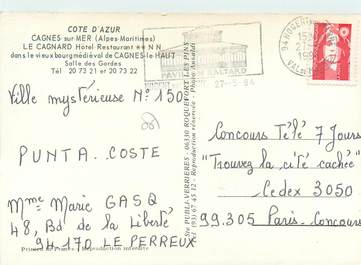 COTE D'AZUR
CAGNES sur MER (Alpes Maritimes)
LE CAGNARD Hôtel-Restaurant ★★NN
dans le vieux bourg médiéval de CAGNES-le-HAUT
Salle des Gardes
Tél 20 73 21 et 20 73 22
PAVILLON BALTARD
27-5-94
94 NOGENT
VAL DE
Ville mystérieuse N° 150
PUNTA-COSTE
Mme Marie GASQ
48, Bd de la Liberté
94170 LE PERREUX
Printed in France - Reproduction interdite
Sté PUBLI-VERRIERES - 06330 ROQUEFORT LES PINS
(93) 67 45 12 - Reproduction réservée - Photo
Concours Télé 7 Jours
"Trouvez la cité cachée"
Cedex 3050
99.305 Paris-Concours